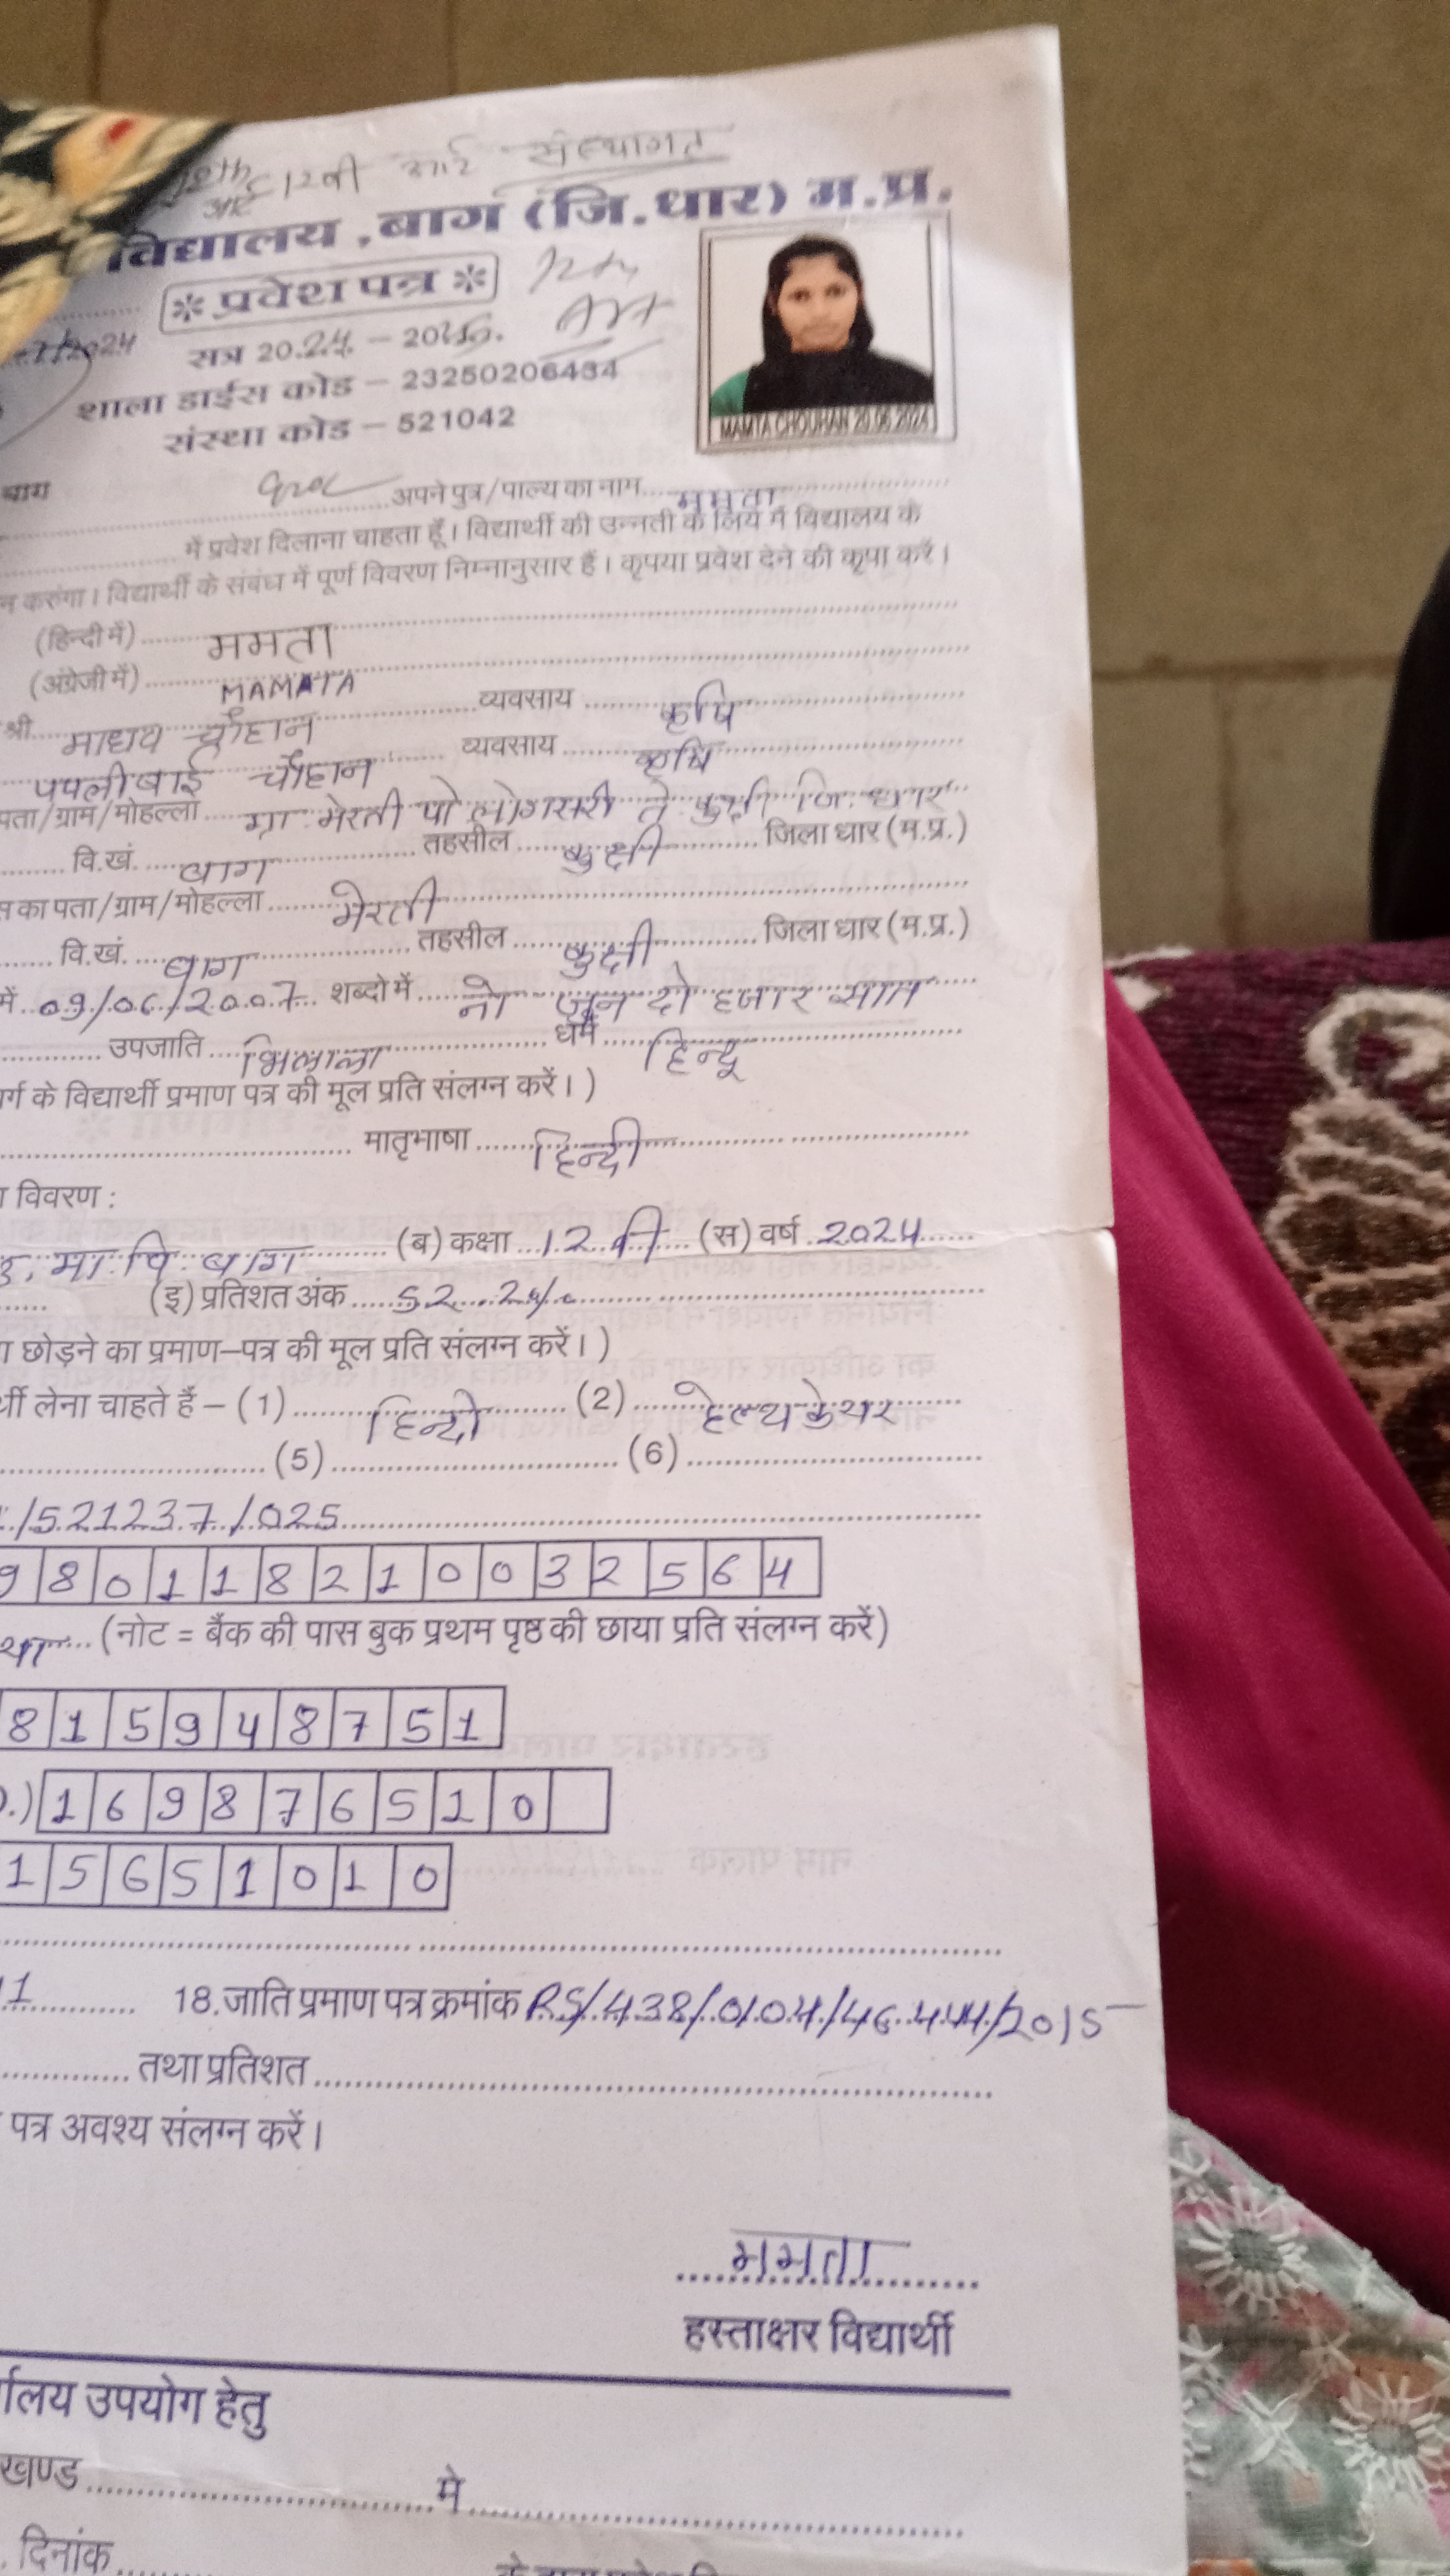 12वी आर्ट संस्थागत
विद्यालय, बाग (जि.धार) म.प्र.
* प्रवेश पत्र *
12th Art
2024
सत्र 2024 - 20
शाला डाईस कोड - 23250206434
संस्था कोड - 521042
MAMTA CHOUHAN 20.06.2024
बाग
अपने पुत्र/पाल्य का नाम ममता
में प्रवेश दिलाना चाहता हूँ। विद्यार्थी की उन्नती के लिये मैं विद्यालय के
न करुंगा। विद्यार्थी के संबंध में पूर्ण विवरण निम्नानुसार हैं। कृपया प्रवेश देने की कृपा करें।
(हिन्दी में) ममता
(अंग्रेजी में) MAMATA
श्री माधव चौहान व्यवसाय कृषि
पपलीबाई चौहान व्यवसाय कृषि
पता/ग्राम/मोहल्ला ग्रा. भेरती पो लोगसरी ते कुक्षी जि. धार
वि.खं. बाग तहसील कुक्षी जिला धार (म.प्र.)
स का पता/ग्राम/मोहल्ला भेरती
वि.खं. बाग तहसील कुक्षी जिला धार (म.प्र.)
में 09/06/2007 शब्दो में नो जून दो हजार सात
उपजाति भिलाला धर्म हिन्दू
र्ग के विद्यार्थी प्रमाण पत्र की मूल प्रति संलग्न करें।)
मातृभाषा हिन्दी
विवरण :
उ. मा. वि. बाग (ब) कक्षा 12 वी (स) वर्ष 2024
(इ) प्रतिशत अंक 52.2%
छोड़ने का प्रमाण-पत्र की मूल प्रति संलग्न करें।)
र्थी लेना चाहते हैं - (1) हिन्दी (2) हेल्थ केयर
(5) (6)
/521237/025
9 8 0 1 1 8 2 1 0 0 3 2 5 6 4
(नोट = बैंक की पास बुक प्रथम पृष्ठ की छाया प्रति संलग्न करें)
8 1 5 9 4 8 7 5 1
.) 1 6 9 8 7 6 5 1 0
1 5 6 5 1 0 1 0
1 18.जाति प्रमाण पत्र क्रमांक RS/438/0104/46444/2015
तथा प्रतिशत
पत्र अवश्य संलग्न करें।
ममता
हस्ताक्षर विद्यार्थी
र्यालय उपयोग हेतु
खण्ड मे
दिनांक